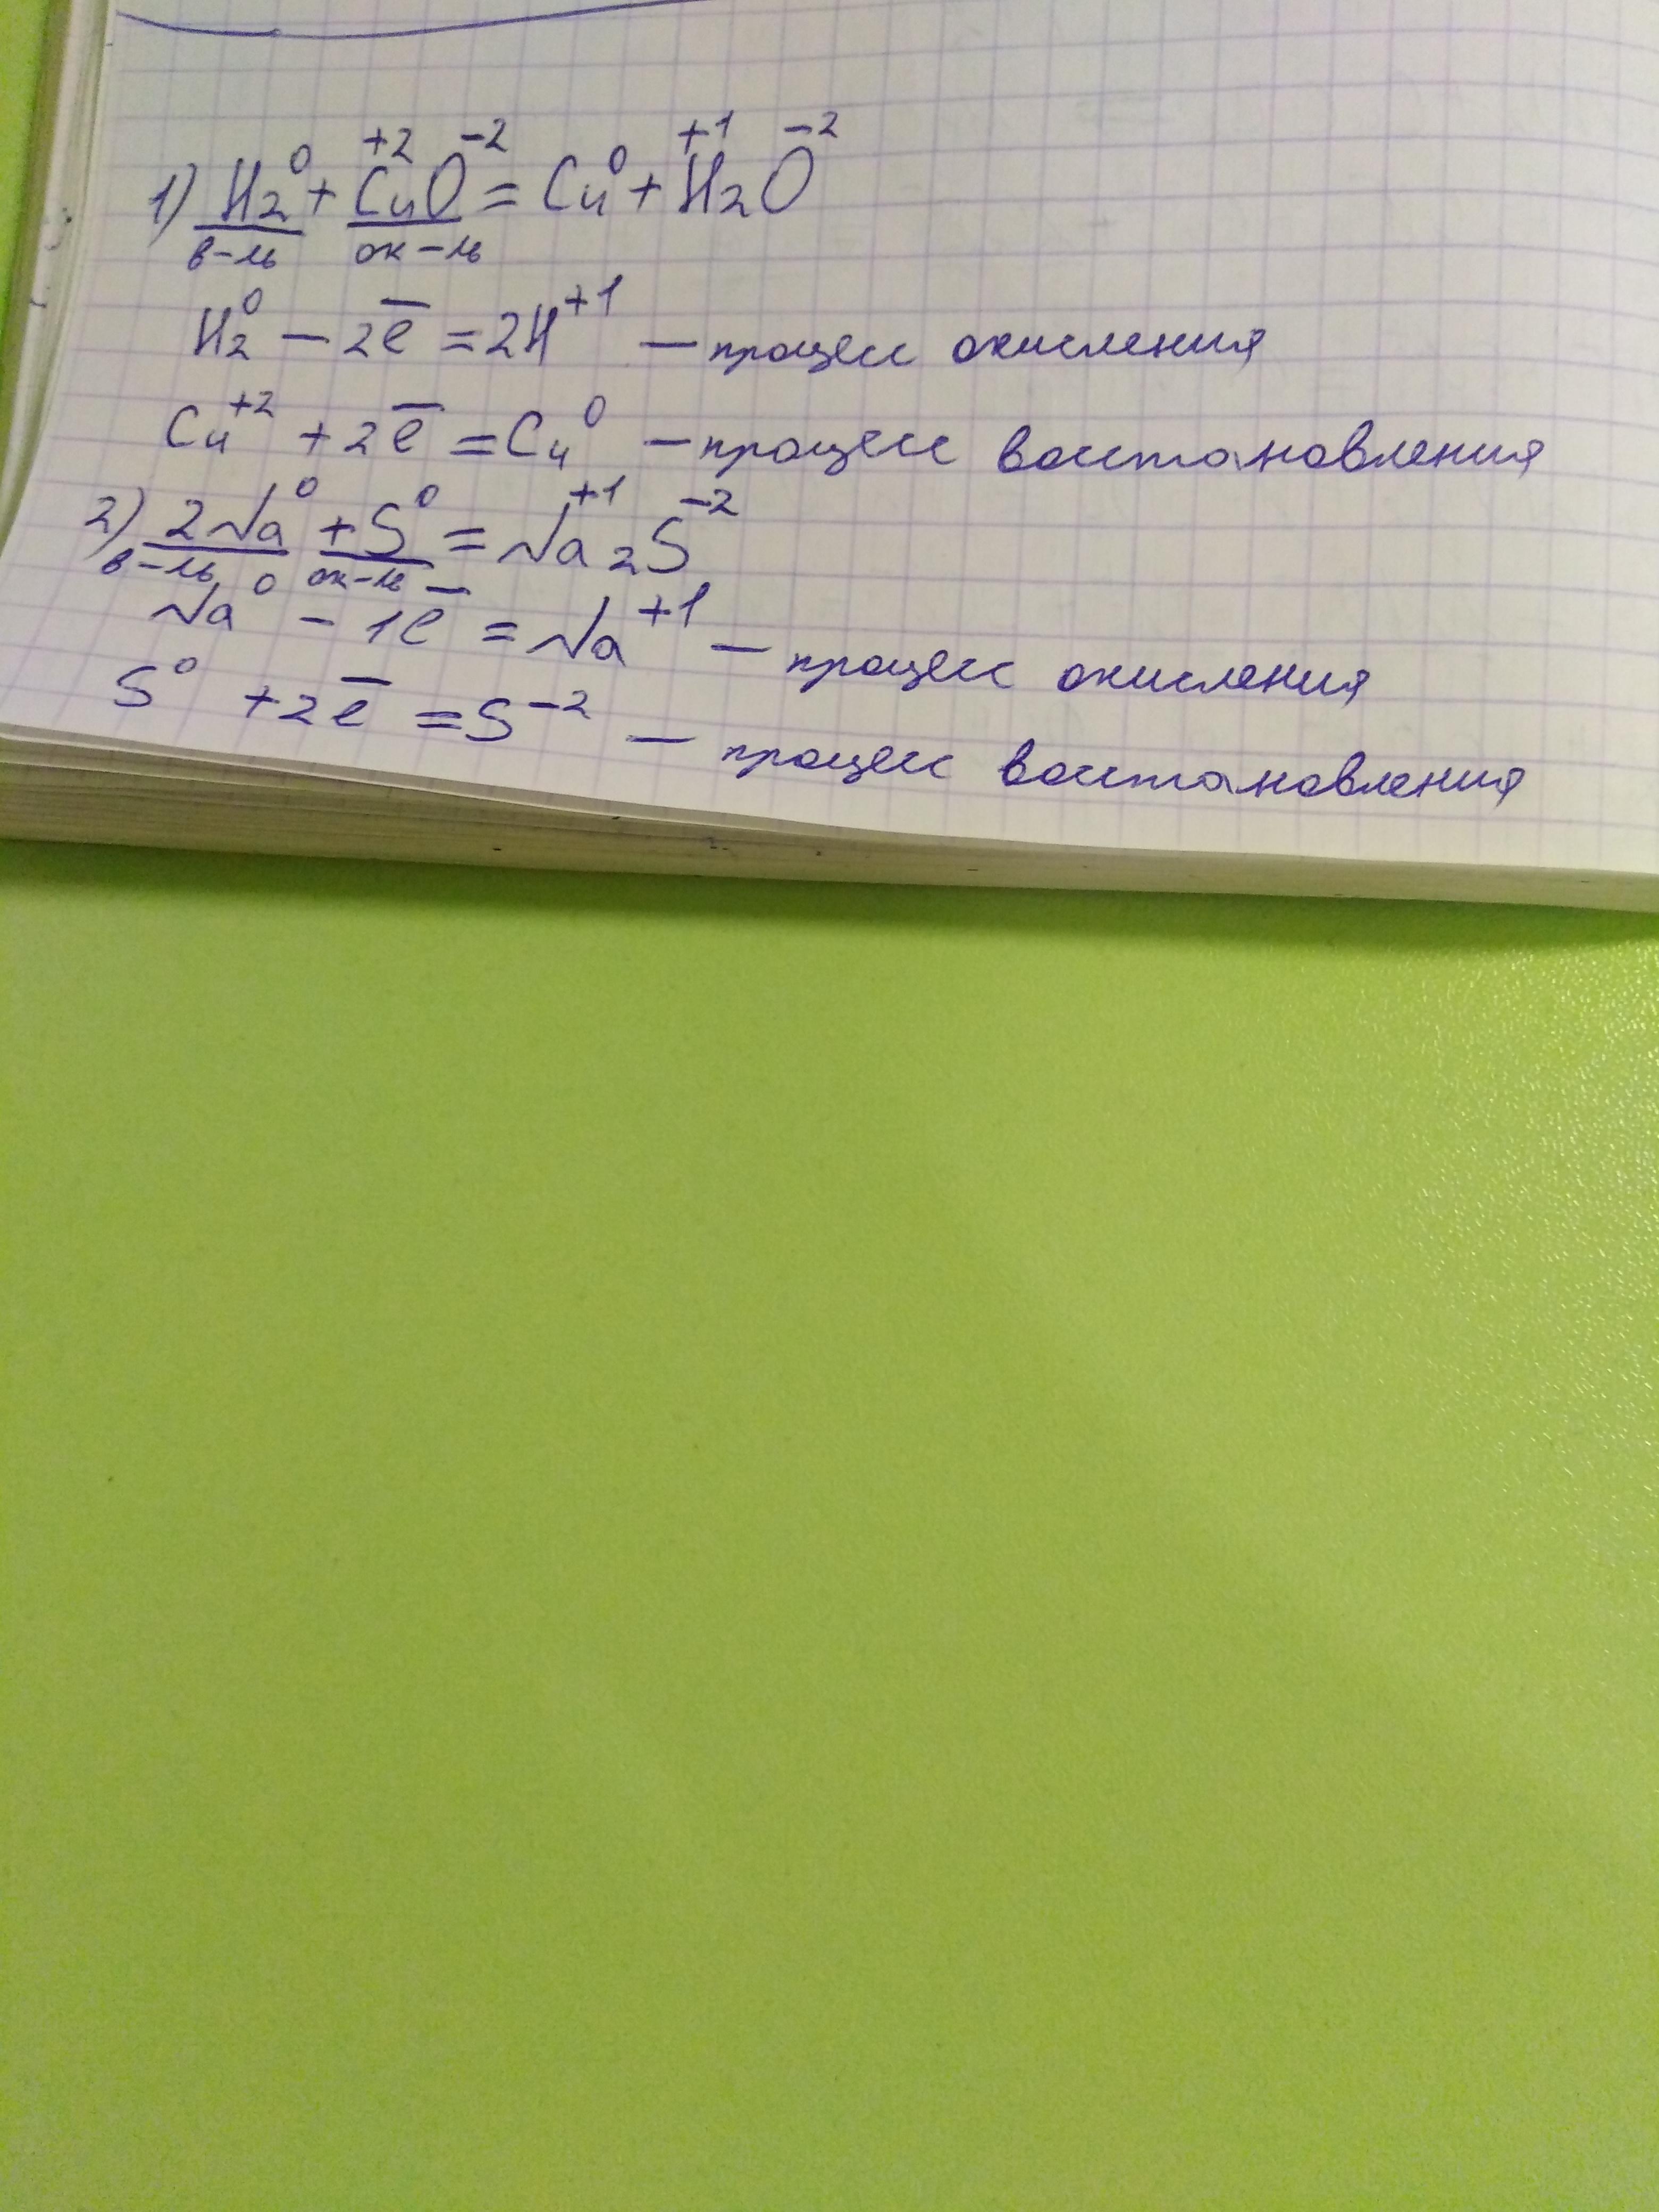 1) H₂⁰ + Cu⁺²O⁻² = Cu⁰ + H₂⁺¹O⁻²
в-ль ок-ль
H₂⁰ − 2e̅ = 2H⁺¹ — процесс окисления
Cu⁺² + 2e̅ = Cu⁰ — процесс восстановления
2) 2Na⁰ + S⁰ = Na⁺¹₂S⁻²
в-ль ок-ль
Na⁰ − 1e̅ = Na⁺¹ — процесс окисления
S⁰ + 2e̅ = S⁻² — процесс восстановления